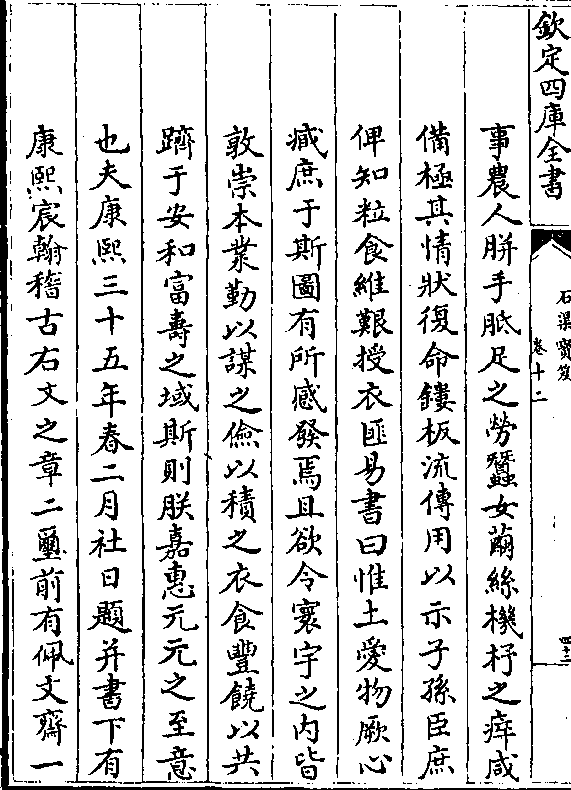 欽定四庫全書
石渠寶笈
卷十二
四十二
事農人胼手胝足之勞蠶女繭絲機杼之瘁咸
備極其情狀復命鏤板流傳用以示子孫臣庶
俾知粒食維艱授衣匪易書曰惟土愛物厥心
臧庶于斯圖有所感發焉且欲令寰宇之內皆
敦崇本業勤以謀之儉以積之衣食豐饒以共
躋于安和富壽之域斯則朕嘉惠元元之至意
也夫康熙三十五年春二月社日題并書下有
康熙宸翰稽古右文之章二璽前有佩文齋一